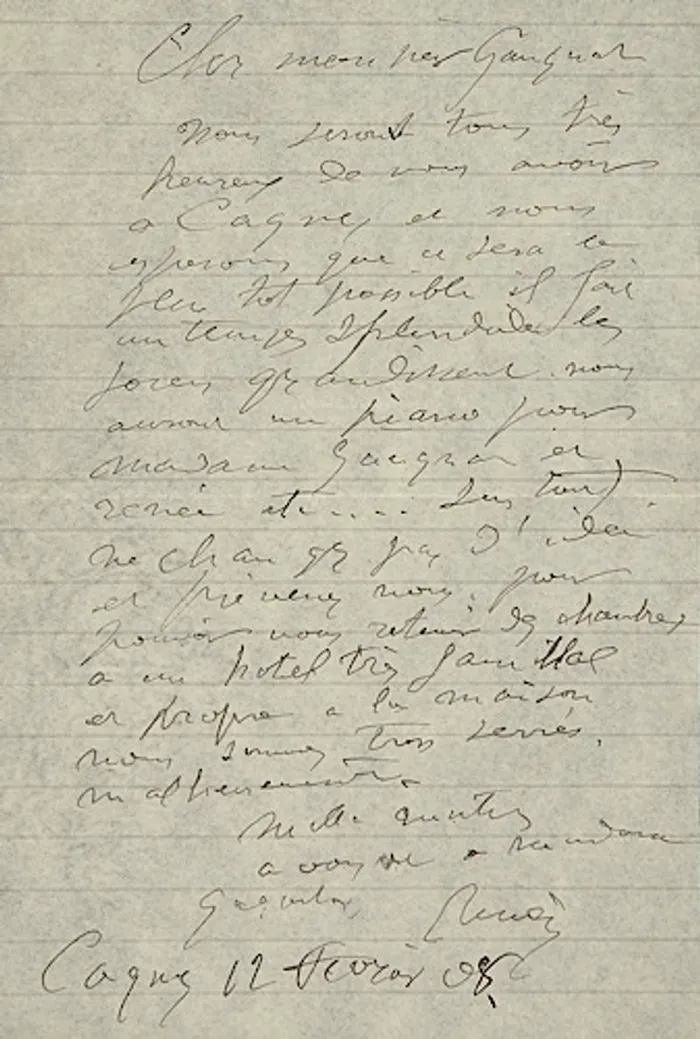 Cher monsieur Gangnat
nous serons tous très
heureux de vous avoir
a Cagnes et nous
esperons que ce sera le
plus tot possible il fait
un temps splendide les
grandissent. nous
aurons un piano pour
madame Gangnat et
renée etc.... sur tout
ne changez pas d'idée
et prevenez nous. pour
pouvoir vous retenir des chambres
a un hotel très familial
et propre a la maison
nous sommes trop serrés.
malheureusement
mille amities
a vous et a madame
Gangnat Renoir
Cagnes 12 Fevrier 08